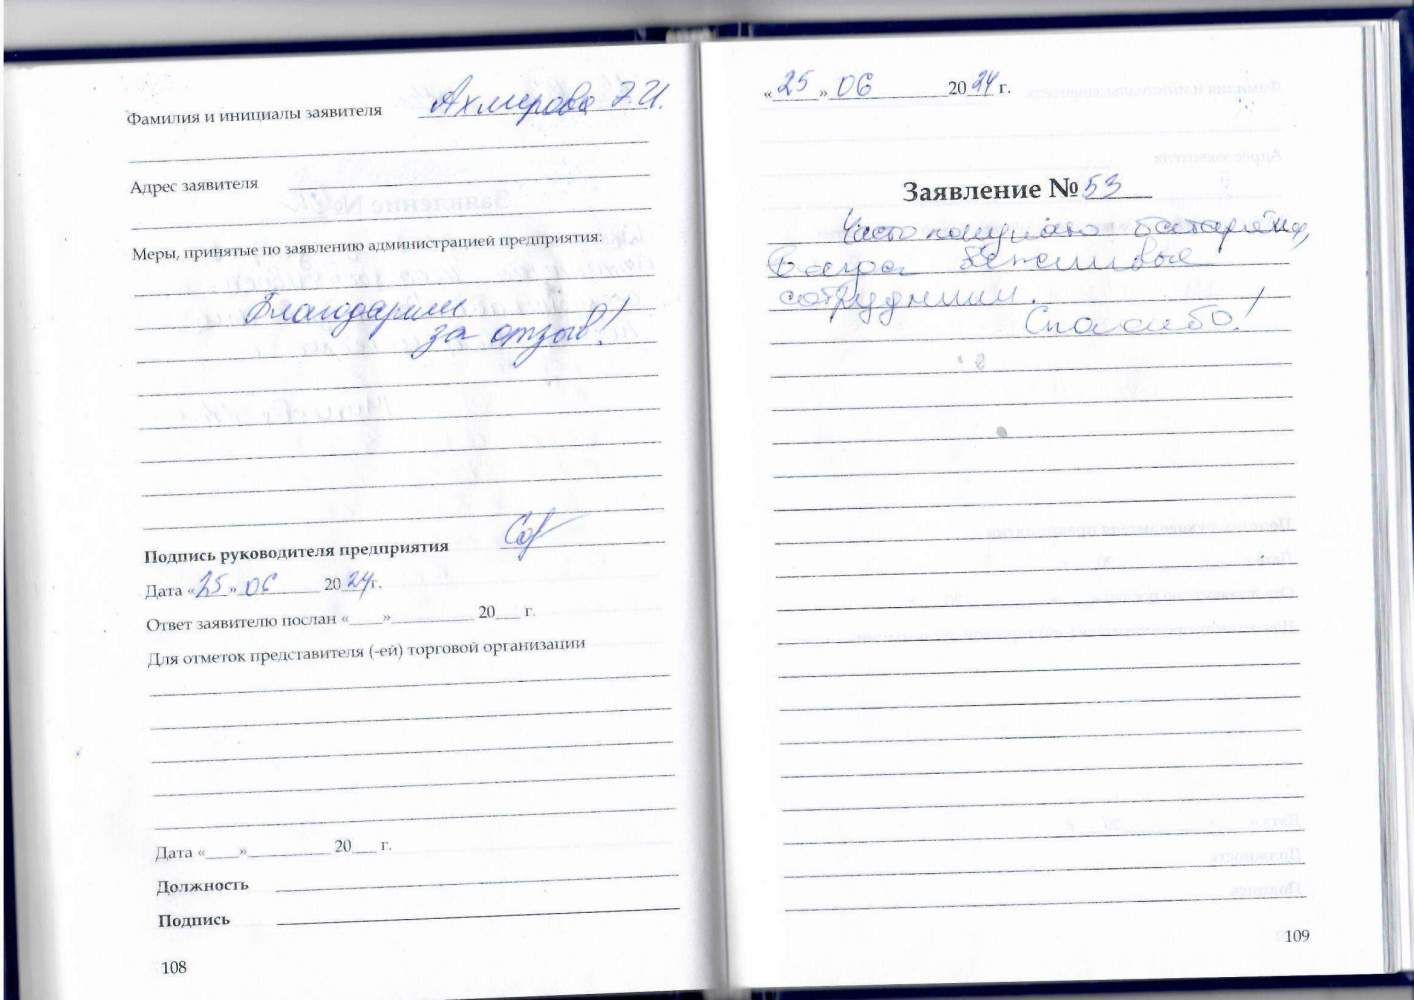 Фамилия и инициалы заявителя Ахмерова Э.И.
Адрес заявителя
Меры, принятые по заявлению администрацией предприятия:
Благодарим
за отзыв!
Подпись руководителя предприятия
Дата «25» 06 2024 г.
Ответ заявителю послан «____»__________ 20___ г.
Для отметок представителя (-ей) торговой организации
Дата «____»__________ 20___ г.
Должность
Подпись
108
«25» 06 2024 г.
Заявление № 53
Часто покупаю батарейки,
Всегда вежливые
сотрудники.
Спасибо!
109